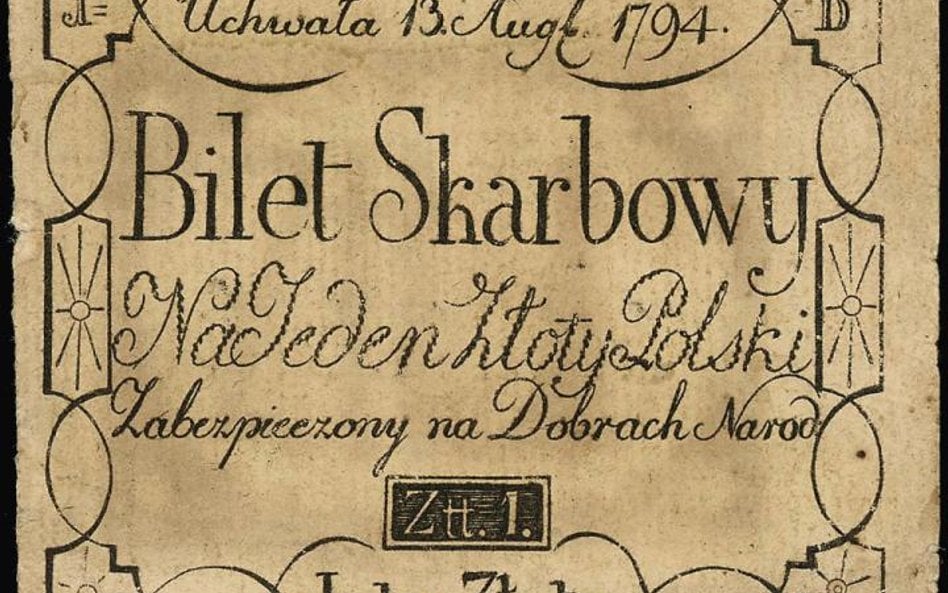 Uchwała 13. Augṭ. 1794.
Bilet Skarbowy
Na Jeden Złoty Polski
Zabezpieczony na Dobrach Narod
Złł. 1.